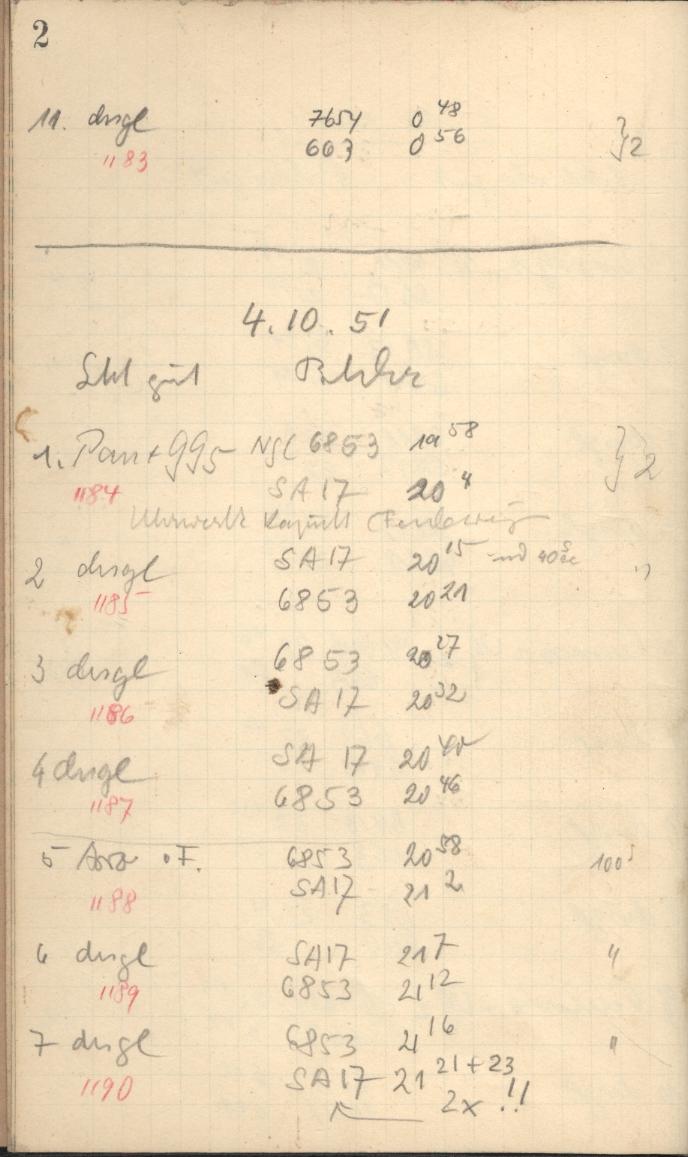 2
11. dsgl 7654 0 48
1183 663 0 56 } 2
4.10.51
gut
1. Pan + 995 NGC 6853 19 58 } 2
1184 SA 17 20 4
Uhrwerk kaputt
2 dsgl SA 17 20 15 und 40 sec "
1185 6853 20 21
3 dsgl 6853 20 27
1186 SA 17 20 32
4 dsgl SA 17 20 40
1187 6853 20 46
5 F. 6853 20 58 100 s
1188 SA 17 21 2
6 dsgl SA 17 21 7 "
1189 6853 21 12
7 dsgl 6853 21 16 "
1190 SA 17 21 21 + 23
2x !!